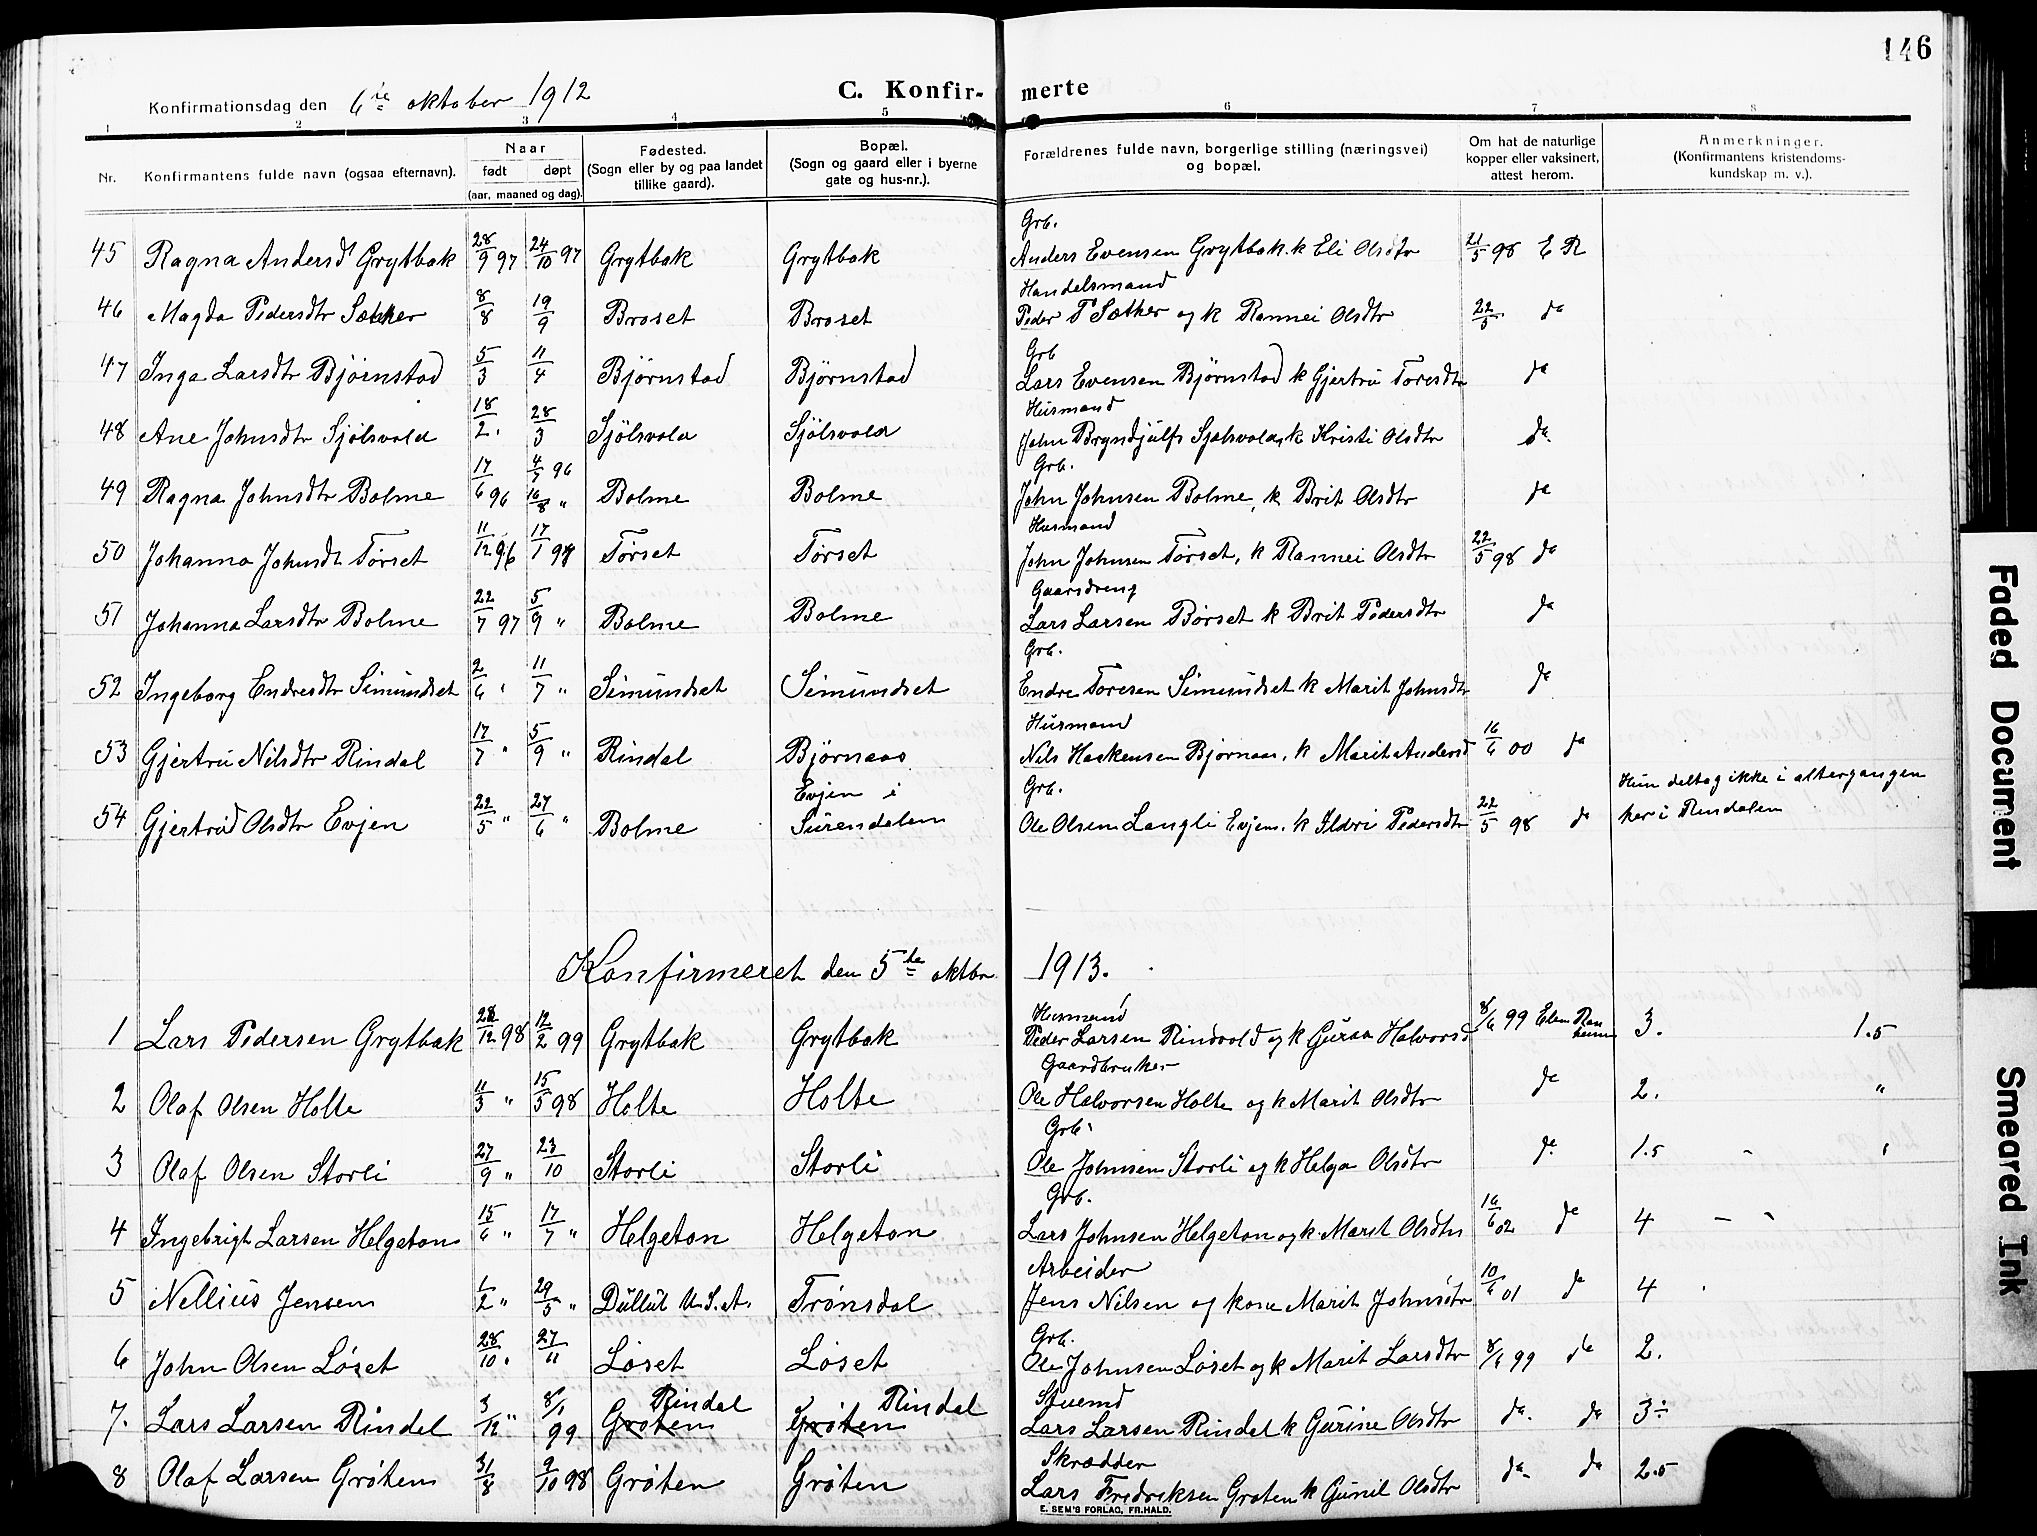 146
Konfirmationsdag den 6te oktober 1912 C. Konfir- merte
1 2 3 4 5 6 7 8
Nr. Konfirmantens fulde navn (ogsaa efternavn). Naar født døpt (aar, maaned og dag). Fødested. (Sogn eller by og paa landet tillike gaard). Bopæl. (Sogn og gaard eller i byerne gate og hus-nr.). Forældrenes fulde navn, borgerlige stilling (næringsvei) og bopæl. Om hat de naturlige kopper eller vaksinert, attest herom. Anmerkninger. (Konfirmantens kristendoms- kundskap m. v.).
Grb.
45 Ragna Andersd Grytbak 28/9 97 24/10 97 Grytbak Grytbak Anders Evensen Grytbak. k Eli Olsdtr 21/5 98 E R
Handelsmand
46 Magda Pedersdtr Sæther 8/8 19/9 Broset Broset Peder P Sæther og k Rannei Olsdtr 22/5 da
Grb
47 Inga Larsdtr Bjørnstad 5/3 11/4 Bjørnstad Bjørnstad Lars Evensen Bjørnstad k Gjertru Toresdtr da
Husmand
48 Ane Johnsdtr Sjølsvold 18/2. 28/3 Sjölsvold Sjölsvold John Bryndjulfs Sjølsvold, k Kristi Olsdtr da.
Grb.
49 Ragna Johnsdtr Bolme 17/6 96 4/7 96 16/8 " Bolme Bolme John Johnsen Bolme, k Brit Olsdtr da
Husmand
50 Johanna Johnsdt Tørset 11/12 96 17/1 97 Tørset Tørset John Johnsen Tørset, k Rannei Olsdtr 22/5 98 da
Gaardreng
51 Johanna Larsdtr Bolme 22/7 97 5/9 " Bolme Bolme Lars Larsen Børset k Brit Pedersdtr da
Grb.
52 Ingeborg Endresdtr Simundset 2/6 " 11/7 " Simundset Simundset Endre Toresen Simundset k Marit Johnsdtr da
Husmand
53 Gjertru Nilsdtr Rindal 17/7 " 5/9 " Rindal Bjørnaas Nils Haakensen Bjørnaas, k Marit Andersd 16/6 00 da
Grb.
54 Gjertrud Olsdtr Evjen 22/5 " 27/6 " Bolme Evjen i Surendalen Ole Olsen Langli Evjen. k Ildri Pedersdtr 22/5 98 da Hun deltog ikke i altergangen her i Rindalen
Konfirmeret den 5te oktbr 1913.
Husmand
1 Lars Pedersen Grytbak 28/12 98 12/2 99 Grytbak Grytbak Peder Larsen Rindvold og k Guraa Halvorsd 8/6 99 Elen Ranheim 3. 1.5
Gaardbruker
2 Olaf Olsen Holte 11/3 " 15/5 98 Holte Holte Ole Halvorsen Holte og k Marit Olsdtr da 2. "
Grb.
3 Olaf Olsen Storli 27/9 " 23/10 Storli Storli Ole Johnsen Storli og k Helga Olsdtr da 1.5
Grb.
4 Ingebrigt Larsen Helgeton 15/6 " 17/7 " Helgeton Helgeton Lars Johnsen Helgeton og k. Marit Olsdtr 16/6 02 da 4
Arbeider
5 Nellius Jensen 1/2 " 29/5 " Dullut U.S.A. Trønsdal Jens Nilsen og kone Marit Johnsdtr 10/6 01 da 4
Grb.
6 John Olsen Løset 28/10 " 27/11 Løset Løset Ole Johnsen Løset og k Marit Larsdtr 8/6 99 da 2.
Rindal Rindal Stuemd
7. Lars Larsen Rindal 3/12 " 8/1 99 Grøten Grøten Lars Larsen Rindal k Gurine Olsdtr da. da 3÷
Skrædder
8 Olaf Larsen Grøten 31/8 9/10 98 Grøten Grøten Lars Fredriksen Grøten k Gunil Olsdtr da da 2.5
E. SEM'S FORLAG, FR.HALD.
Faded Document
Smeared Ink